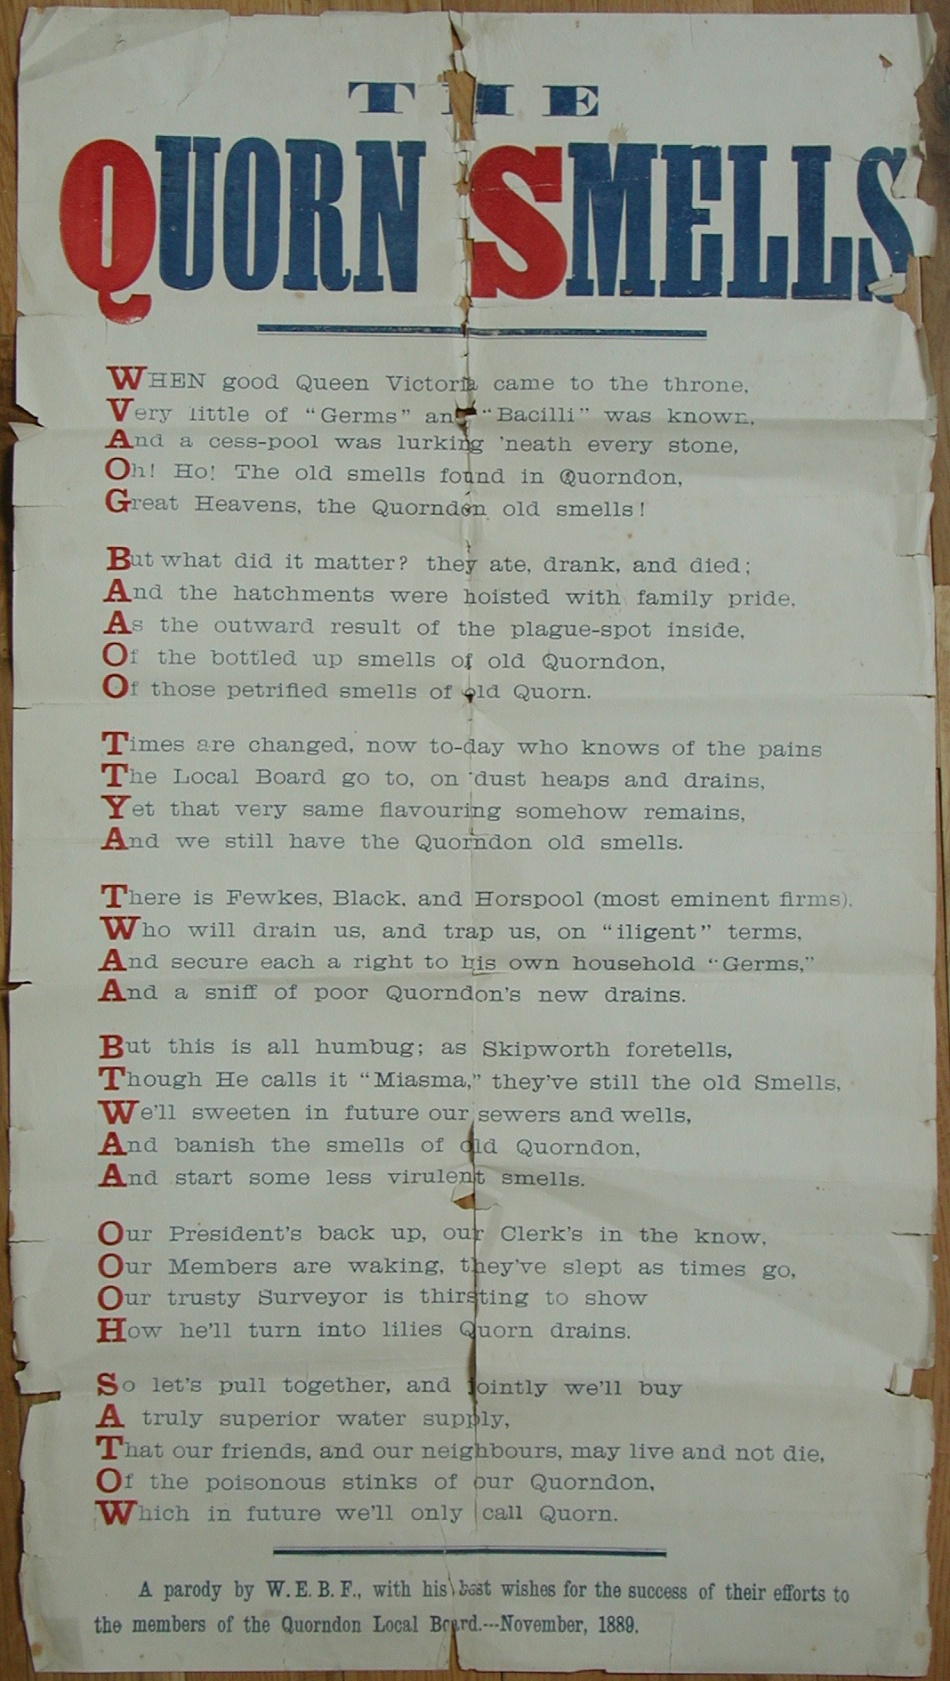 THE
QUORN SMELLS
WHEN good Queen Victoria came to the throne,
Very little of “Germs” and “Bacilli” was known,
And a cess-pool was lurking 'neath every stone,
Oh! Ho! The old smells found in Quorndon,
Great Heavens, the Quorndon old smells!
But what did it matter? they ate, drank, and died;
And the hatchments were hoisted with family pride,
As the outward result of the plague-spot inside,
Of the bottled up smells of old Quorndon,
Of those petrified smells of old Quorn.
Times are changed, now to-day who knows of the pains
The Local Board go to, on dust heaps and drains,
Yet that very same flavouring somehow remains,
And we still have the Quorndon old smells.
There is Fewkes, Black, and Horspool (most eminent firms),
Who will drain us, and trap us, on “iligent” terms,
And secure each a right to his own household “Germs,”
And a sniff of poor Quorndon's new drains.
But this is all humbug; as Skipworth foretells,
Though He calls it “Miasma,” they've still the old Smells,
We'll sweeten in future our sewers and wells,
And banish the smells of old Quorndon,
And start some less virulent smells.
Our President's back up, our Clerk's in the know,
Our Members are waking, they've slept as times go,
Our trusty Surveyor is thirsting to show
How he'll turn into lilies Quorn drains.
So let's pull together, and jointly we'll buy
A truly superior water supply,
That our friends, and our neighbours, may live and not die,
Of the poisonous stinks of our Quorndon,
Which in future we'll only call Quorn.
A parody by W. E. B. F., with his best wishes for the success of their efforts to
the members of the Quorndon Local Board.---November, 1889.